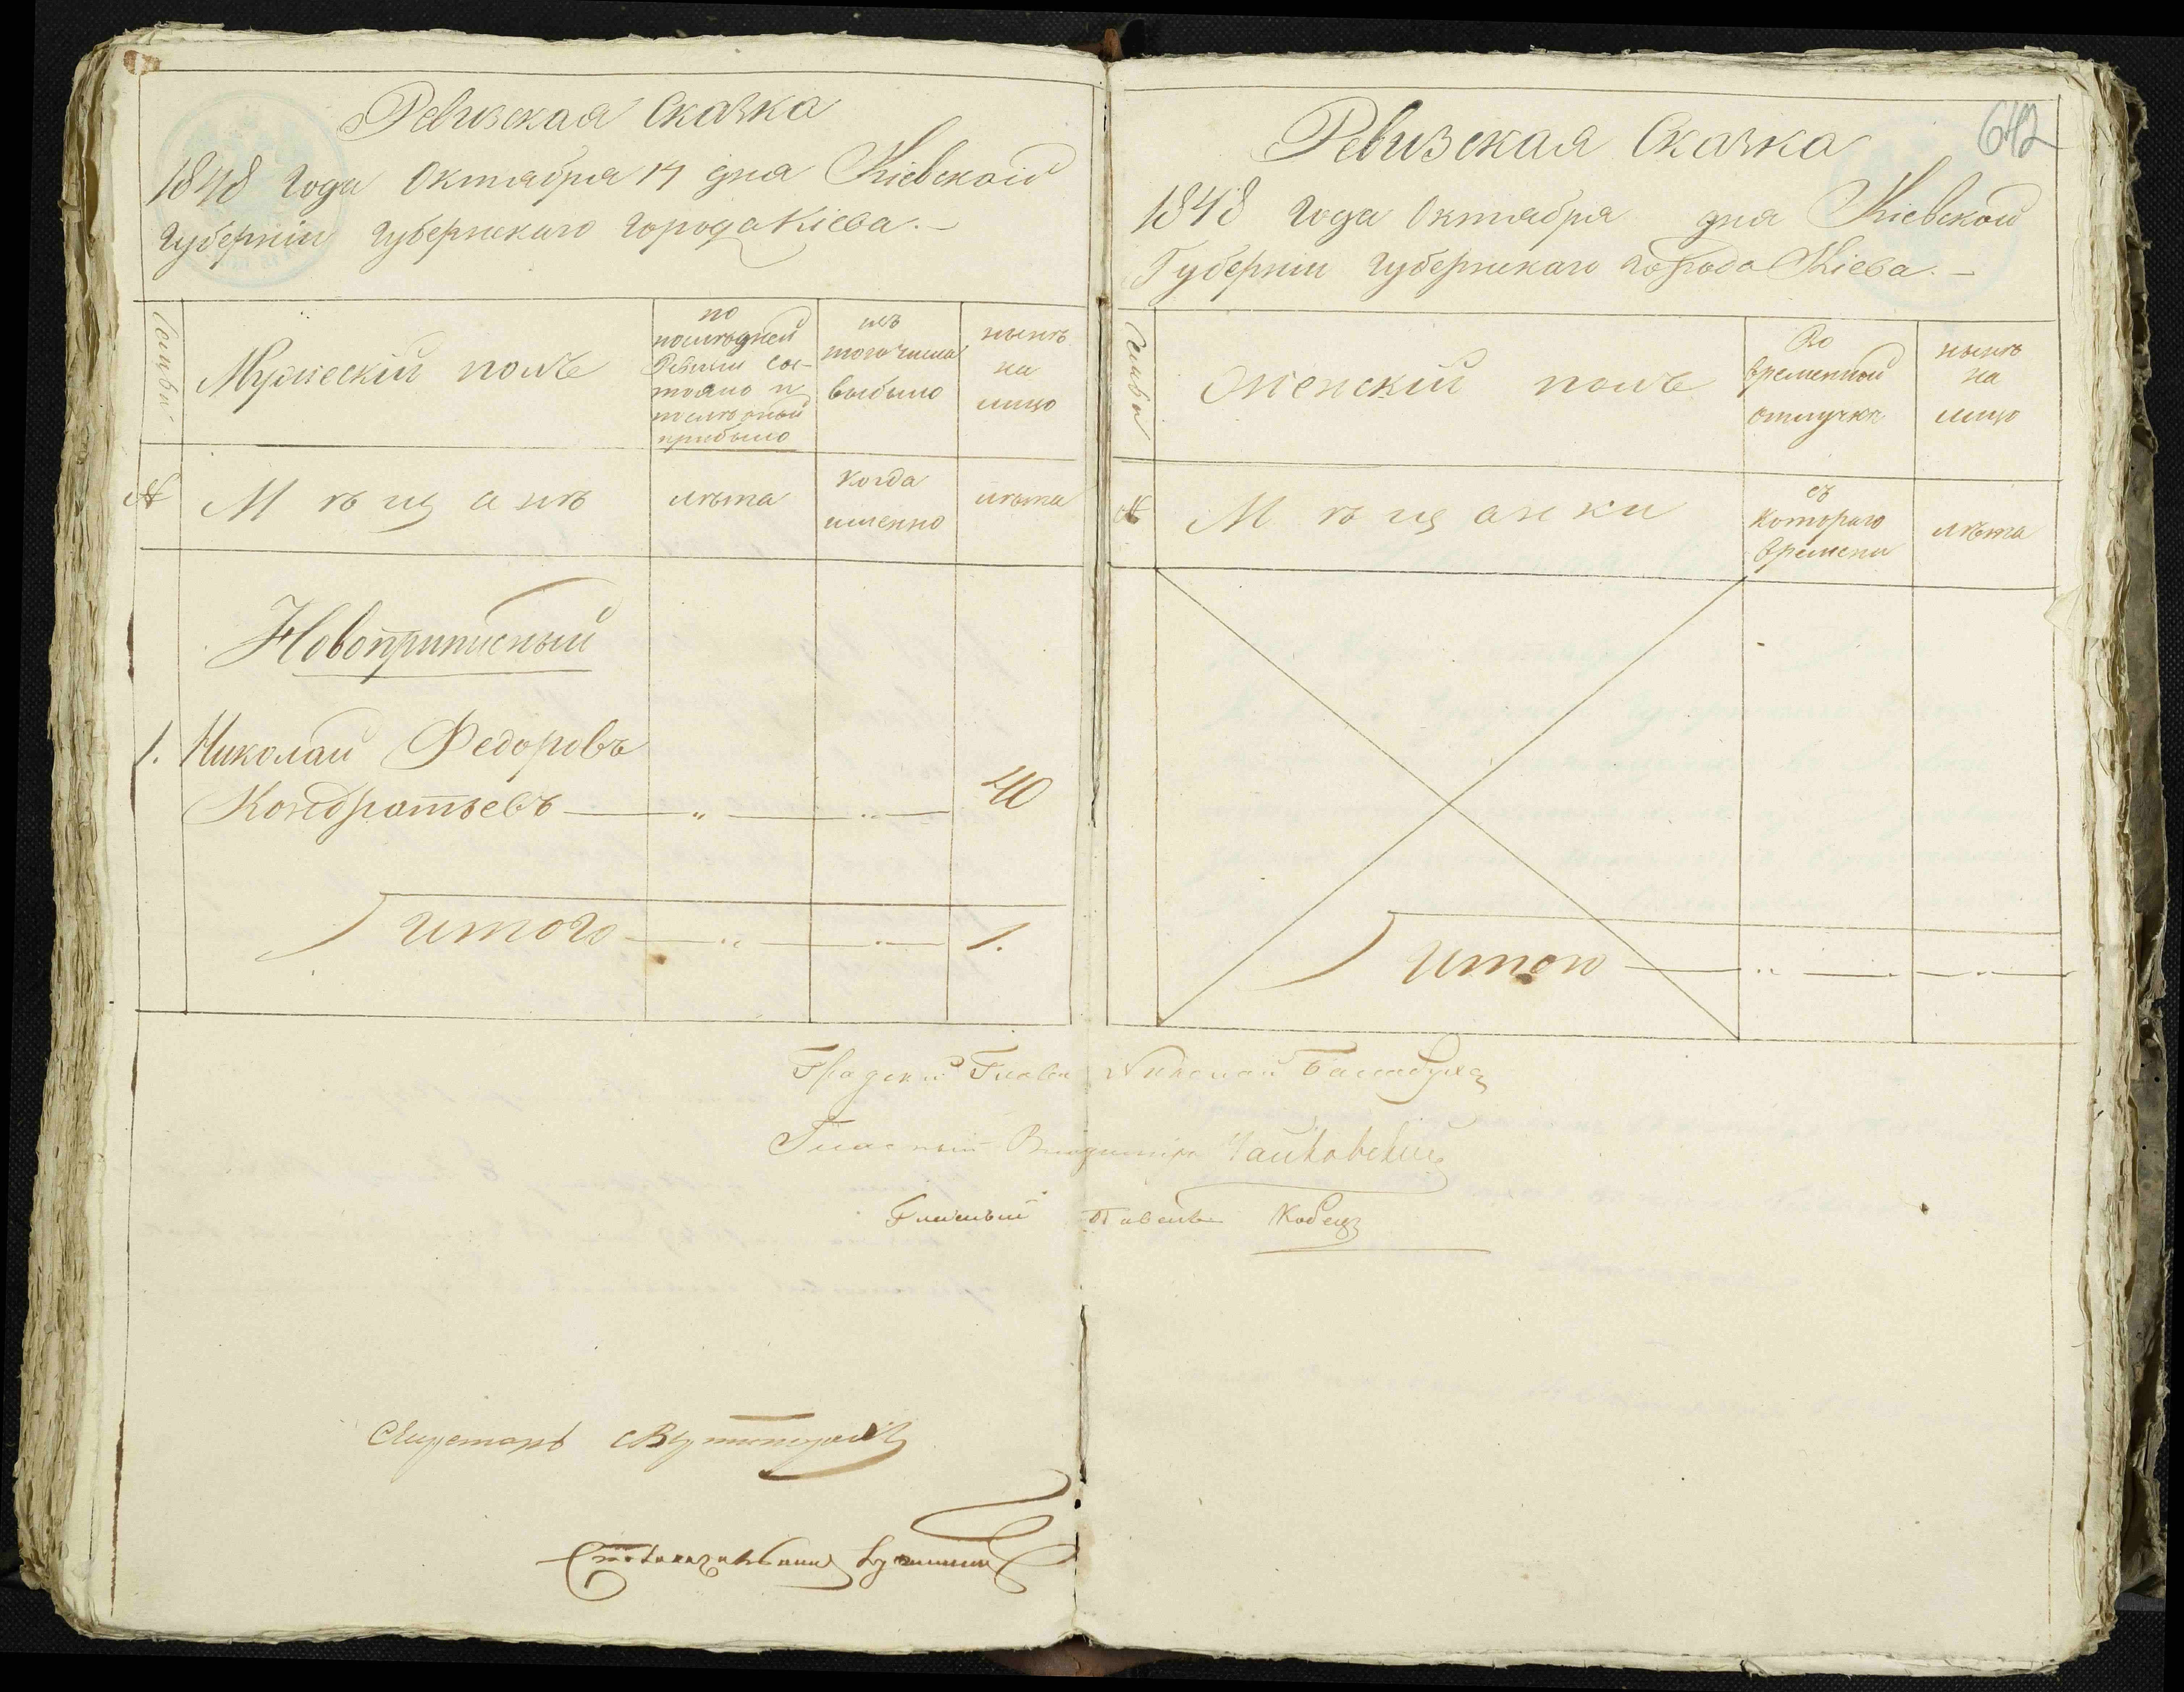 Ревизская Сказка
1848 года Октября 14 дня Кіевской
Губерніи губернскаго города Кіева.
Семьи
Мужескій полъ
по
последней
Ревизіи сос-
тояло и
после оной
прибыло
изъ
того числа
выбыло
нынѣ
на
лицо
№
Мѣщанъ
лѣта
когда
именно
лѣта
Новоприписный
1. Николай Федоровъ
Кондратьевъ — „ — „ — 40
Итого — „ — „ — 1.
642
Ревизская Сказка
1848 года Октября дня Кіевской
Губерніи губернскаго города Кіева.
Семьи
Женскій полъ
Во
временной
отлучкѣ
нынѣ
на
лицо
№
Мѣщанки
съ
котораго
времени
лѣта
Итого — „ — „ —
Градской Глава Николай Балабуха
Гласный Владиміръ Чайковскій
Гласный Павелъ Кобец
Секретарь